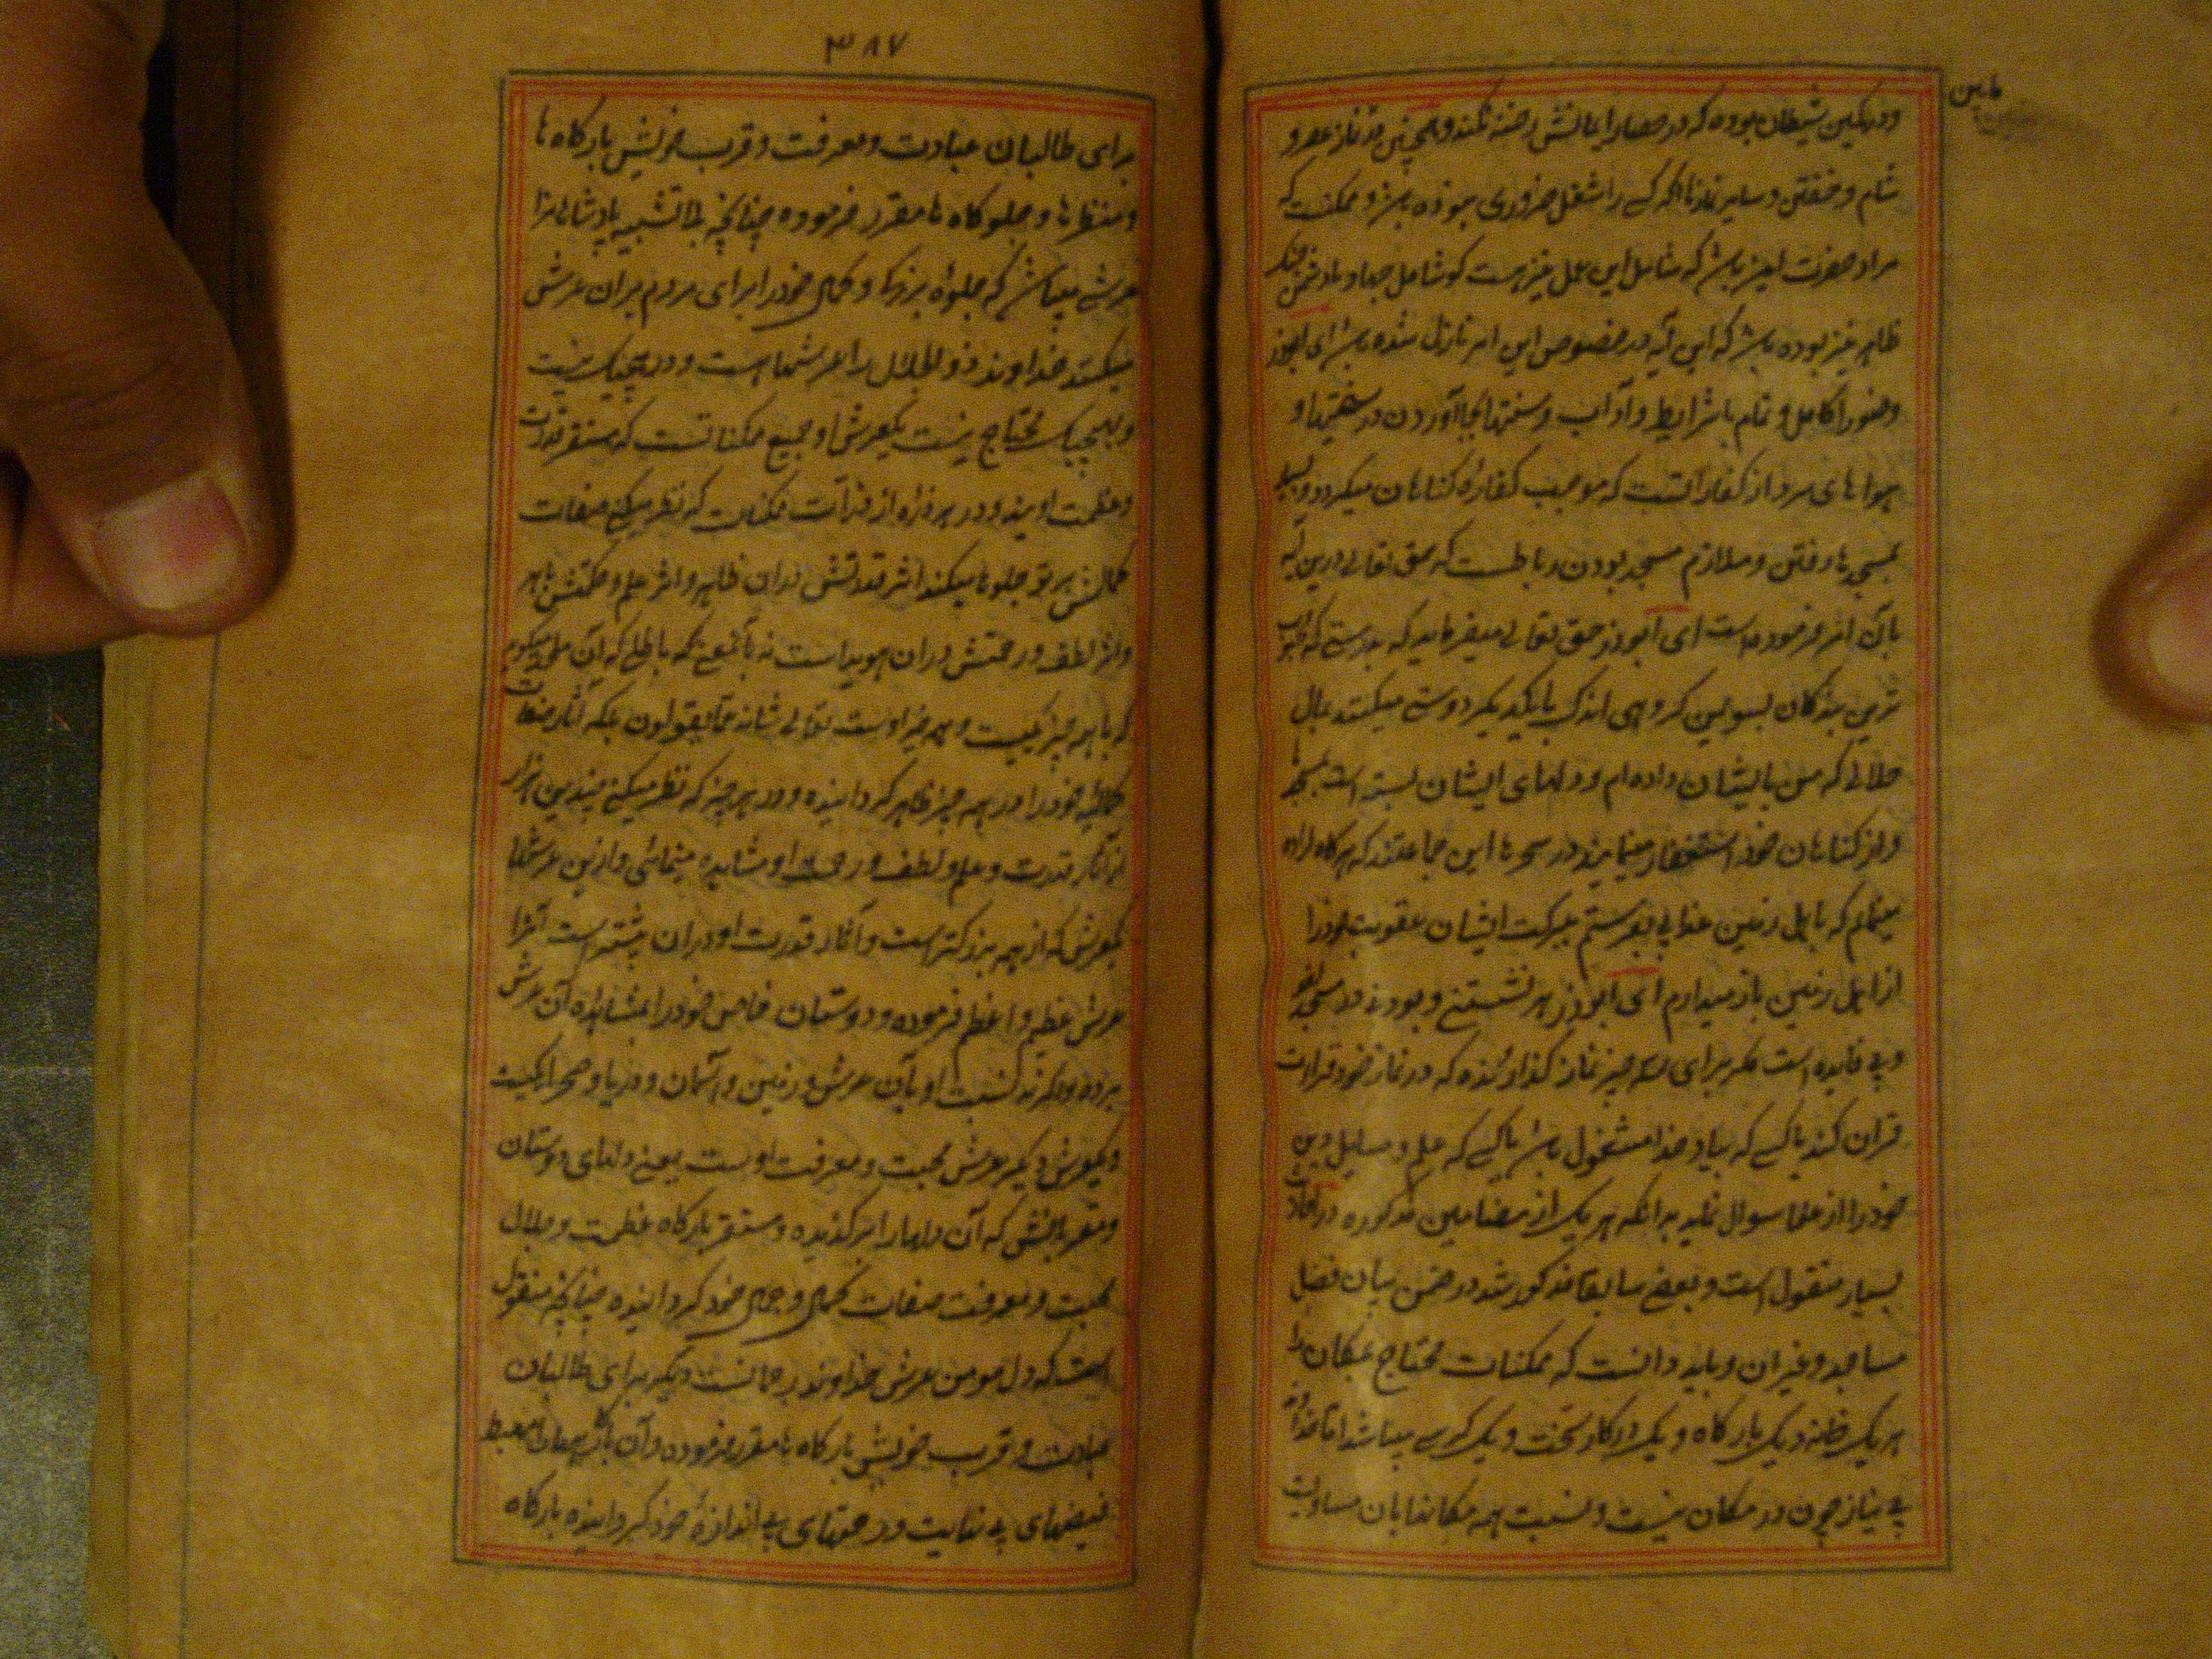 مابین
ودر کمین شیطان بوده که در حصار ایمانش رخنه نکند و همچنین در نماز عصر و
شام و خفتن و سایر نمازها اگر کسی را شغل ضروری نبوده باشد و ممکنست که
مراد حضرت این باشد که شامل این عمل نیز هست کو شامل جهاد با دشمن
ظاهر نیز بوده باشد که این آیه در خصوص این امر نازل شده باشد ای ابوذر
وضو را کامل و تمام با شرایط و آداب و سنتها بجا آوردن در سختیها و
هواهای سرد از کفاراتست که موجب کفاره کناهان میکردد و بسیار
بمسجدها رفتن و ملازم مسجد بودن رباطست که حق تعالی درین آیه
بآن امر فرموده است ای ابوذر حق تعالی میفرماید که بدرستی که محبوب
ترین بندکان بسوی من کروهی اند که با یکدیکر دوستی میکنند بمال
حلالی که من بایشان داده ام و دلهای ایشان بسته است بمسجدها
و از کناهان خود استغفار مینمایند در سحرها این جماعتند که هرکاه اراده
مینمایم که باهل زمین عذابی بفرستم ببرکت ایشان عقوبت خود را
از اهل زمین باز میدارم ای ابوذر هر نشستنی و بودن در مسجد لغو
و بی فایده است مکر برای سه چیز نماز کذارنده که در نماز خود قراءت
قران کند یا کسی که بیاد خدا مشغول باشد یا کسی که علم و مسایل دین
خود را از علما سوال نماید بدانکه هر یک از مضامین مذکوره در
بسیار منقول است و بعضی سابقا مذکور شد در ضمن بیان فضل
مساجد و غیر ان و باید دانست که ممکنات محتاج بمکان را
هر یک خانه و یک بارکاه و یک درکاه و تخت و یک کرسی میباشد اما خداوند
بی نیاز چون در مکان نیست و نسبت همه مکانها بان مساویست
۳۸۷
برای طالبان عبادت و معرفت و قرب خویش بارکاه ها
و منظرها و جلوکاه ها مقرر فرموده چنانچه بلا تشبیه پادشاهانرا
عرشی میباشد که جلوهٔ بزرکی و کمال خود را برای مردم بران عرش
میکنند خداوند ذوالجلال را عرشهاست و در هیچیک نیست
و بهیچیک محتاج نیست یکعرش او جمیع ممکناتست که مستقر قدرت
و عظمت اویند و در هر ذره از ذرات ممکنات که نظر میکنی صفات
کمالش پرتو جلوها میکند اثر قدرتش دران ظاهر و اثر علم و حکمتش باهر
و اثر لطف و رحمتش دران هویداست نه بآنمعنی که باطلی که آن ملحد میکوید
که با همه چیز یکیست و همه چیز اوست تعالی شانه عما یقولون بلکه آثار صفات
کمالیه خود را در همه چیز ظاهر کردانیده و در هر چیز که نظر میکنی چندین هزار
از آثار قدرت و علم و لطف و رحمت او مشاهده مینمائی و ازین عرشها
یکعرش که از همه بزرکتر است و آثار قدرت او دران بیشتر است آنرا
عرش عظیم و اعظم فرموده و دوستان خاص خود را بمشاهده آن عرش
برده و اکرنه نسبت او بآن عرش و زمین و آسمان و دریا و صحرا یکیست
و یکعرش دیکر عرش محبت و معرفت اوست یعنی دلهای دوستان
و مقربانش که آن دلها را برکذیده و مستقر بارکاه عظمت و جلال
محبت و معرفت صفات کمال و جمال خود کردانیده چنانچه منقول
است که دل مومن عرش خداوند رحمانست دیکر برای طالبان
عبادت و قرب خویش بارکاه ها مقرر فرموده و آن بارکاه
فیضهای بی نهایت و رحمتهای بی اندازهٔ خود کردانیده بارکاه